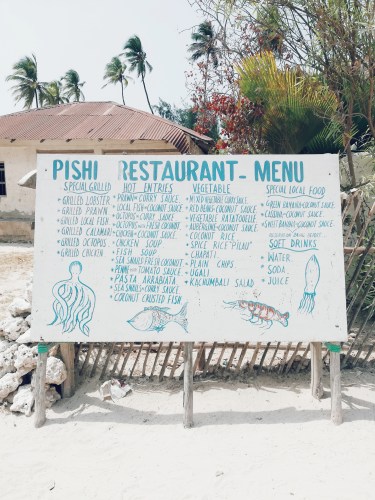 PISHI RESTAURANT - MENU
SPECIAL GRILLED
GRILLED LOBSTER
GRILLED PRAWN
GRILLED LOCAL FISH
GRILLED CALAMARI
GRILLED OCTOPUS
GRILLED CHICKEN
HOT ENTRIES
PRAWN - CURRY SAUCE
LOCAL FISH - COCONUT SAUCE
OCTOPUS - CURRY SAUCE
OCTOPUS FRESH COCONUT
CHICKEN - COCONUT SAUCE
CHICKEN SOUP
FISH SOUP
SEA SNAILS FRESH COCONUT
PENNE TOMATO SAUCE
PASTA ARRABIATA
SEA SNAILS - CURRY SAUCE
COCONUT CRUSTED FISH
VEGETABLE
MIXED VEGETABLE CURRY SAUCE
RED BEANS - COCONUT SAUCE
VEGETABLE RATATOUILLE
AUBERGINE - COCONUT SAUCE
COCONUT RICE
SPICE RICE "PILAU"
CHAPATI
PLAIN CHIPS
UGALI
KACHUMBALI SALAD
SPECIAL LOCAL FOOD
GREEN BANANA - COCONUT SAUCE
CASSAVA - COCONUT SAUCE
SWEET BANANA - COCONUT SAUCE
SOFT DRINKS
WATER
SODA
JUICE